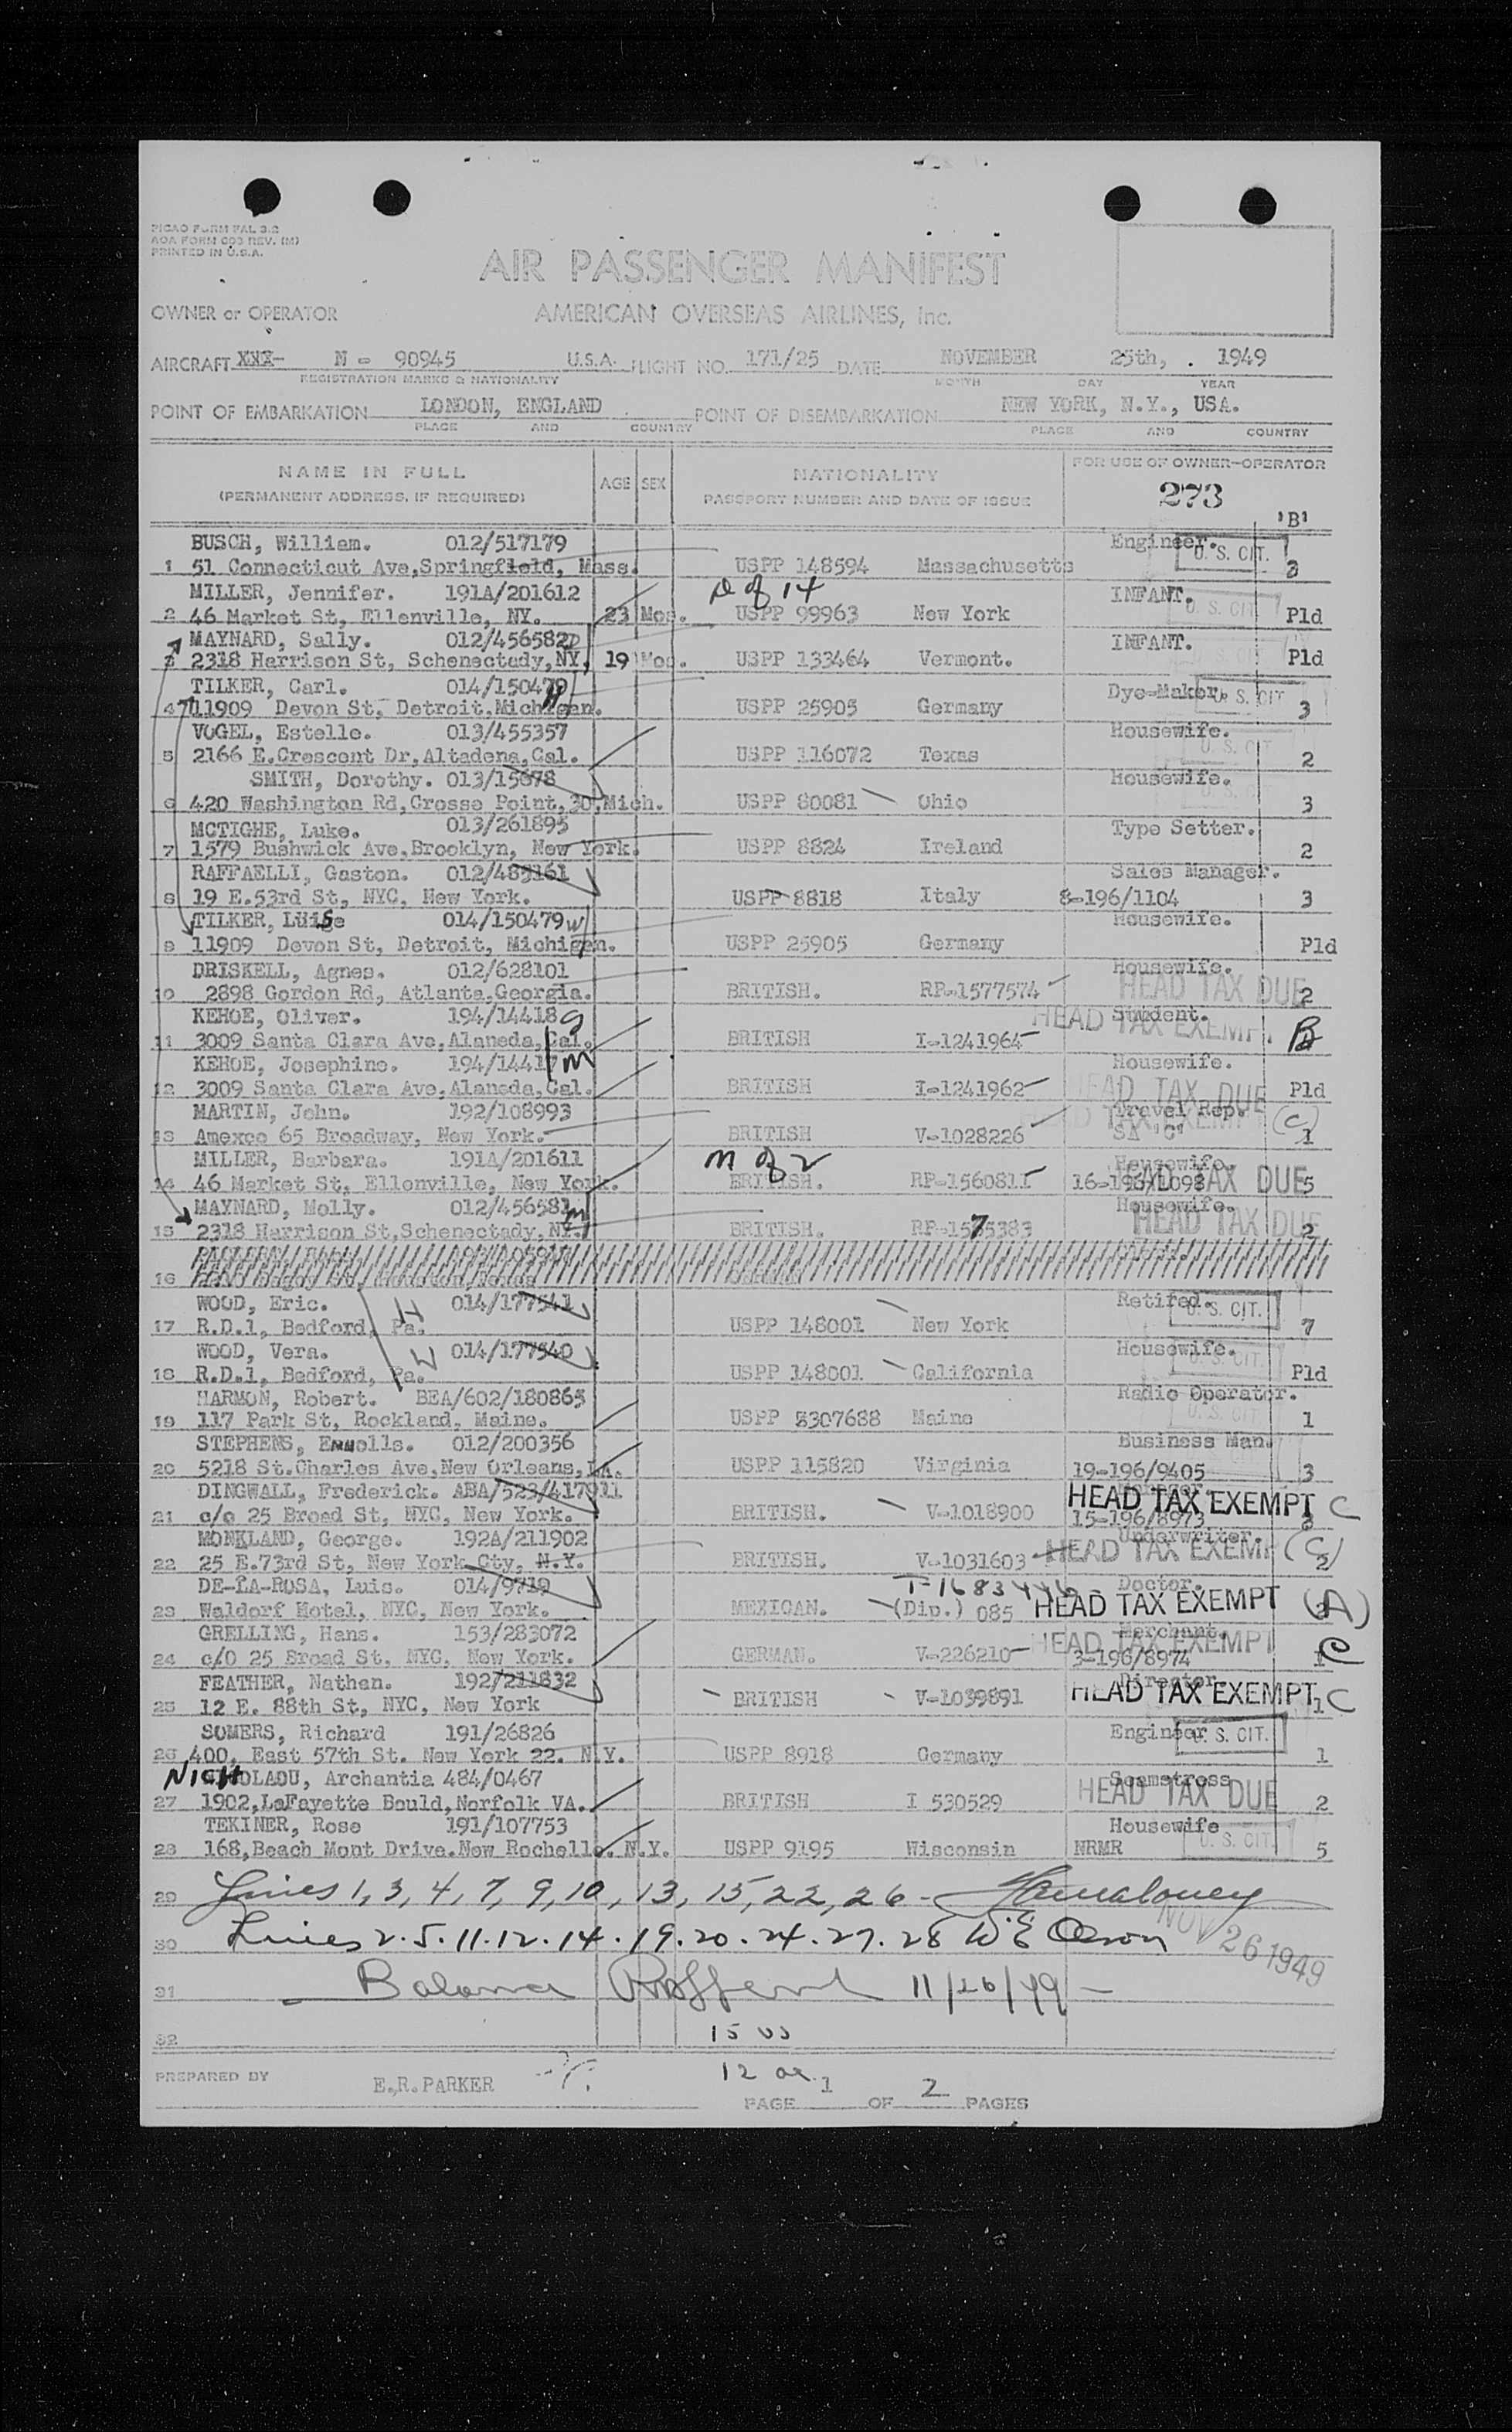 PICAO FORM FAL 3.2
AOA FORM 603 REV. (M)
PRINTED IN U.S.A.
AIR PASSENGER MANIFEST
OWNER or OPERATOR AMERICAN OVERSEAS AIRLINES, Inc.
AIRCRAFT XXX- N - 90945 U.S.A. FLIGHT NO. 171/25 DATE NOVEMBER 25th, . 1949
REGISTRATION MARKS & NATIONALITY MONTH DAY YEAR
POINT OF EMBARKATION LONDON, ENGLAND POINT OF DISEMBARKATION NEW YORK, N.Y., USA.
PLACE AND COUNTRY PLACE AND COUNTRY
NAME IN FULL AGE SEX NATIONALITY FOR USE OF OWNER-OPERATOR
(PERMANENT ADDRESS, IF REQUIRED) PASSPORT NUMBER AND DATE OF ISSUE 273
'B'
BUSCH, William. 012/517179 Engineer. U. S. CIT.
1 51 Connecticut Ave,Springfield, Mass. USPP 148594 Massachusetts 3
MILLER, Jennifer. 191A/201612 D of 14 INFANT. U. S. CIT.
2 46 Market St, Ellenville, NY. 23 Mos. USPP 99963 New York Pld
MAYNARD, Sally. 012/456582 D INFANT. U. S. CIT.
3 2318 Harrison St, Schenectady,NY, 19 Mos. USPP 133464 Vermont. Pld
TILKER, Carl. 014/150479 H Dye-Maker. U. S. CIT
4 11909 Devon St, Detroit,Michigan. USPP 25905 Germany 3
VOGEL, Estelle. 013/455357 Housewife. U. S. CIT
5 2166 E.Crescent Dr,Altadena,Cal. USPP 116072 Texas 2
SMITH, Dorothy. 013/15678 Housewife. U. S.
6 420 Washington Rd,Grosse Point,30,Mich. USPP 80081 Ohio 3
MCTIGHE, Luke. 013/261895 Type Setter.
7 1579 Bushwick Ave,Brooklyn, New York. USPP 8824 Ireland 2
RAFFAELLI, Gaston. 012/485161 Sales Manager.
8 19 E.53rd St, NYC, New York. USPP 8818 Italy 8-196/1104 3
TILKER, Luise 014/150479 W Housewife.
9 11909 Devon St, Detroit, Michigan. USPP 25905 Germany Pld
DRISKELL, Agnes. 012/628101 Housewife. HEAD TAX DUE
10 2898 Gordon Rd, Atlanta,Georgia. BRITISH. RP-1577574 2
KEHOE, Oliver. 194/14418 S Student. HEAD TAX EXEMPT
11 3009 Santa Clara Ave,Alameda,Cal. BRITISH I-1241964 B
KEHOE, Josephine. 194/14417 M Housewife.
12 3009 Santa Clara Ave,Alameda,Cal. BRITISH I-1241962 HEAD TAX DUE Pld
MARTIN, John. 192/108993 Travel Rep. HEAD TAX EXEMPT (C)
13 Amexco 65 Broadway, New York. BRITISH V-1028226 SA "C" 1
MILLER, Barbara. 191A/201611 M of 2 Housewife. HEAD TAX DUE
14 46 Market St, Ellenville, New York. BRITISH. RP-1560811 16-196/1098 5
MAYNARD, Molly. 012/456581 M Housewife. HEAD TAX DUE
15 2318 Harrison St,Schenectady,NY. BRITISH. RP-1575383 2
16
WOOD, Eric. H 014/177541 Retired. U. S. CIT.
17 R.D.1, Bedford, Pa. USPP 148001 New York 7
WOOD, Vera. W 014/177540 Housewife. U. S. CIT.
18 R.D.1, Bedford, Pa. USPP 148001 California Pld
HARMON, Robert. BEA/602/180865 Radio Operator. U. S. CIT
19 117 Park St, Rockland, Maine. USPP 5307688 Maine 1
STEPHENS, Ennolls. 012/200356 Business Man.
20 5218 St.Charles Ave,New Orleans,LA. USPP 115820 Virginia 19-196/9405 3
DINGWALL, Frederick. ABA/523/417911 Manager. HEAD TAX EXEMPT C
21 c/o 25 Broad St, NYC, New York. BRITISH. V-1018900 15-196/8973
MONKLAND, George. 192A/211902 Underwriter. HEAD TAX EXEMPT (C)
22 25 E.73rd St, New York Cty, N.Y. BRITISH. V-1031603 2
DE-LA-ROSA, Luis. 014/9719 T-1683446 Doctor. HEAD TAX EXEMPT (A)
23 Waldorf Hotel, NYC, New York. MEXICAN. (Dip.) 085
GRELLING, Hans. 153/283072 Merchant. HEAD TAX EXEMPT C
24 c/o 25 Broad St, NYC, New York. GERMAN. V-226210 3-196/8974 1
FEATHER, Nathan. 192/211832 Director. HEAD TAX EXEMPT C
25 12 E. 88th St, NYC, New York BRITISH V-1039891 1
SOMERS, Richard 191/26826 Engineer U. S. CIT.
26 400, East 57th St. New York 22. N.Y. USPP 8918 Germany 1
NICHOLAOU, Archantia 484/0467 Seamstress HEAD TAX DUE
27 1902,LaFayette Bould,Norfolk VA. BRITISH I 530529 2
TEKINER, Rose 191/107753 Housewife U. S. CIT.
28 168,Beach Mont Drive.New Rochelle. N.Y. USPP 9195 Wisconsin NRMR 5
29 Lines 1, 3, 4, 7, 9, 10, 13, 15, 22, 26 -
30 Lines 2. 5. 11. 12. 14. 19. 20. 24. 27. 28 W E Olson NOV 26 1949
31 Balance 11/26/49
32 15 US
12 al.
PREPARED BY E.R.PARKER PAGE 1 OF 2 PAGES